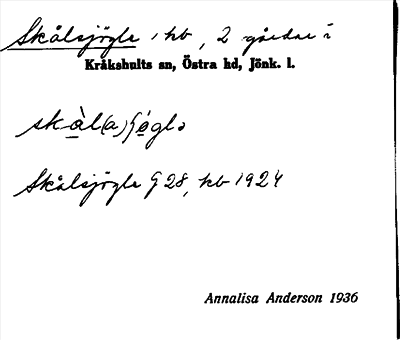 Skålsjögle, kb, 2 gårdar i
Kråkshults sn, Östra hd, Jönk. l.
skàl(a)
Skålsjögle G 28, kb 1924
Annalisa Anderson 1936